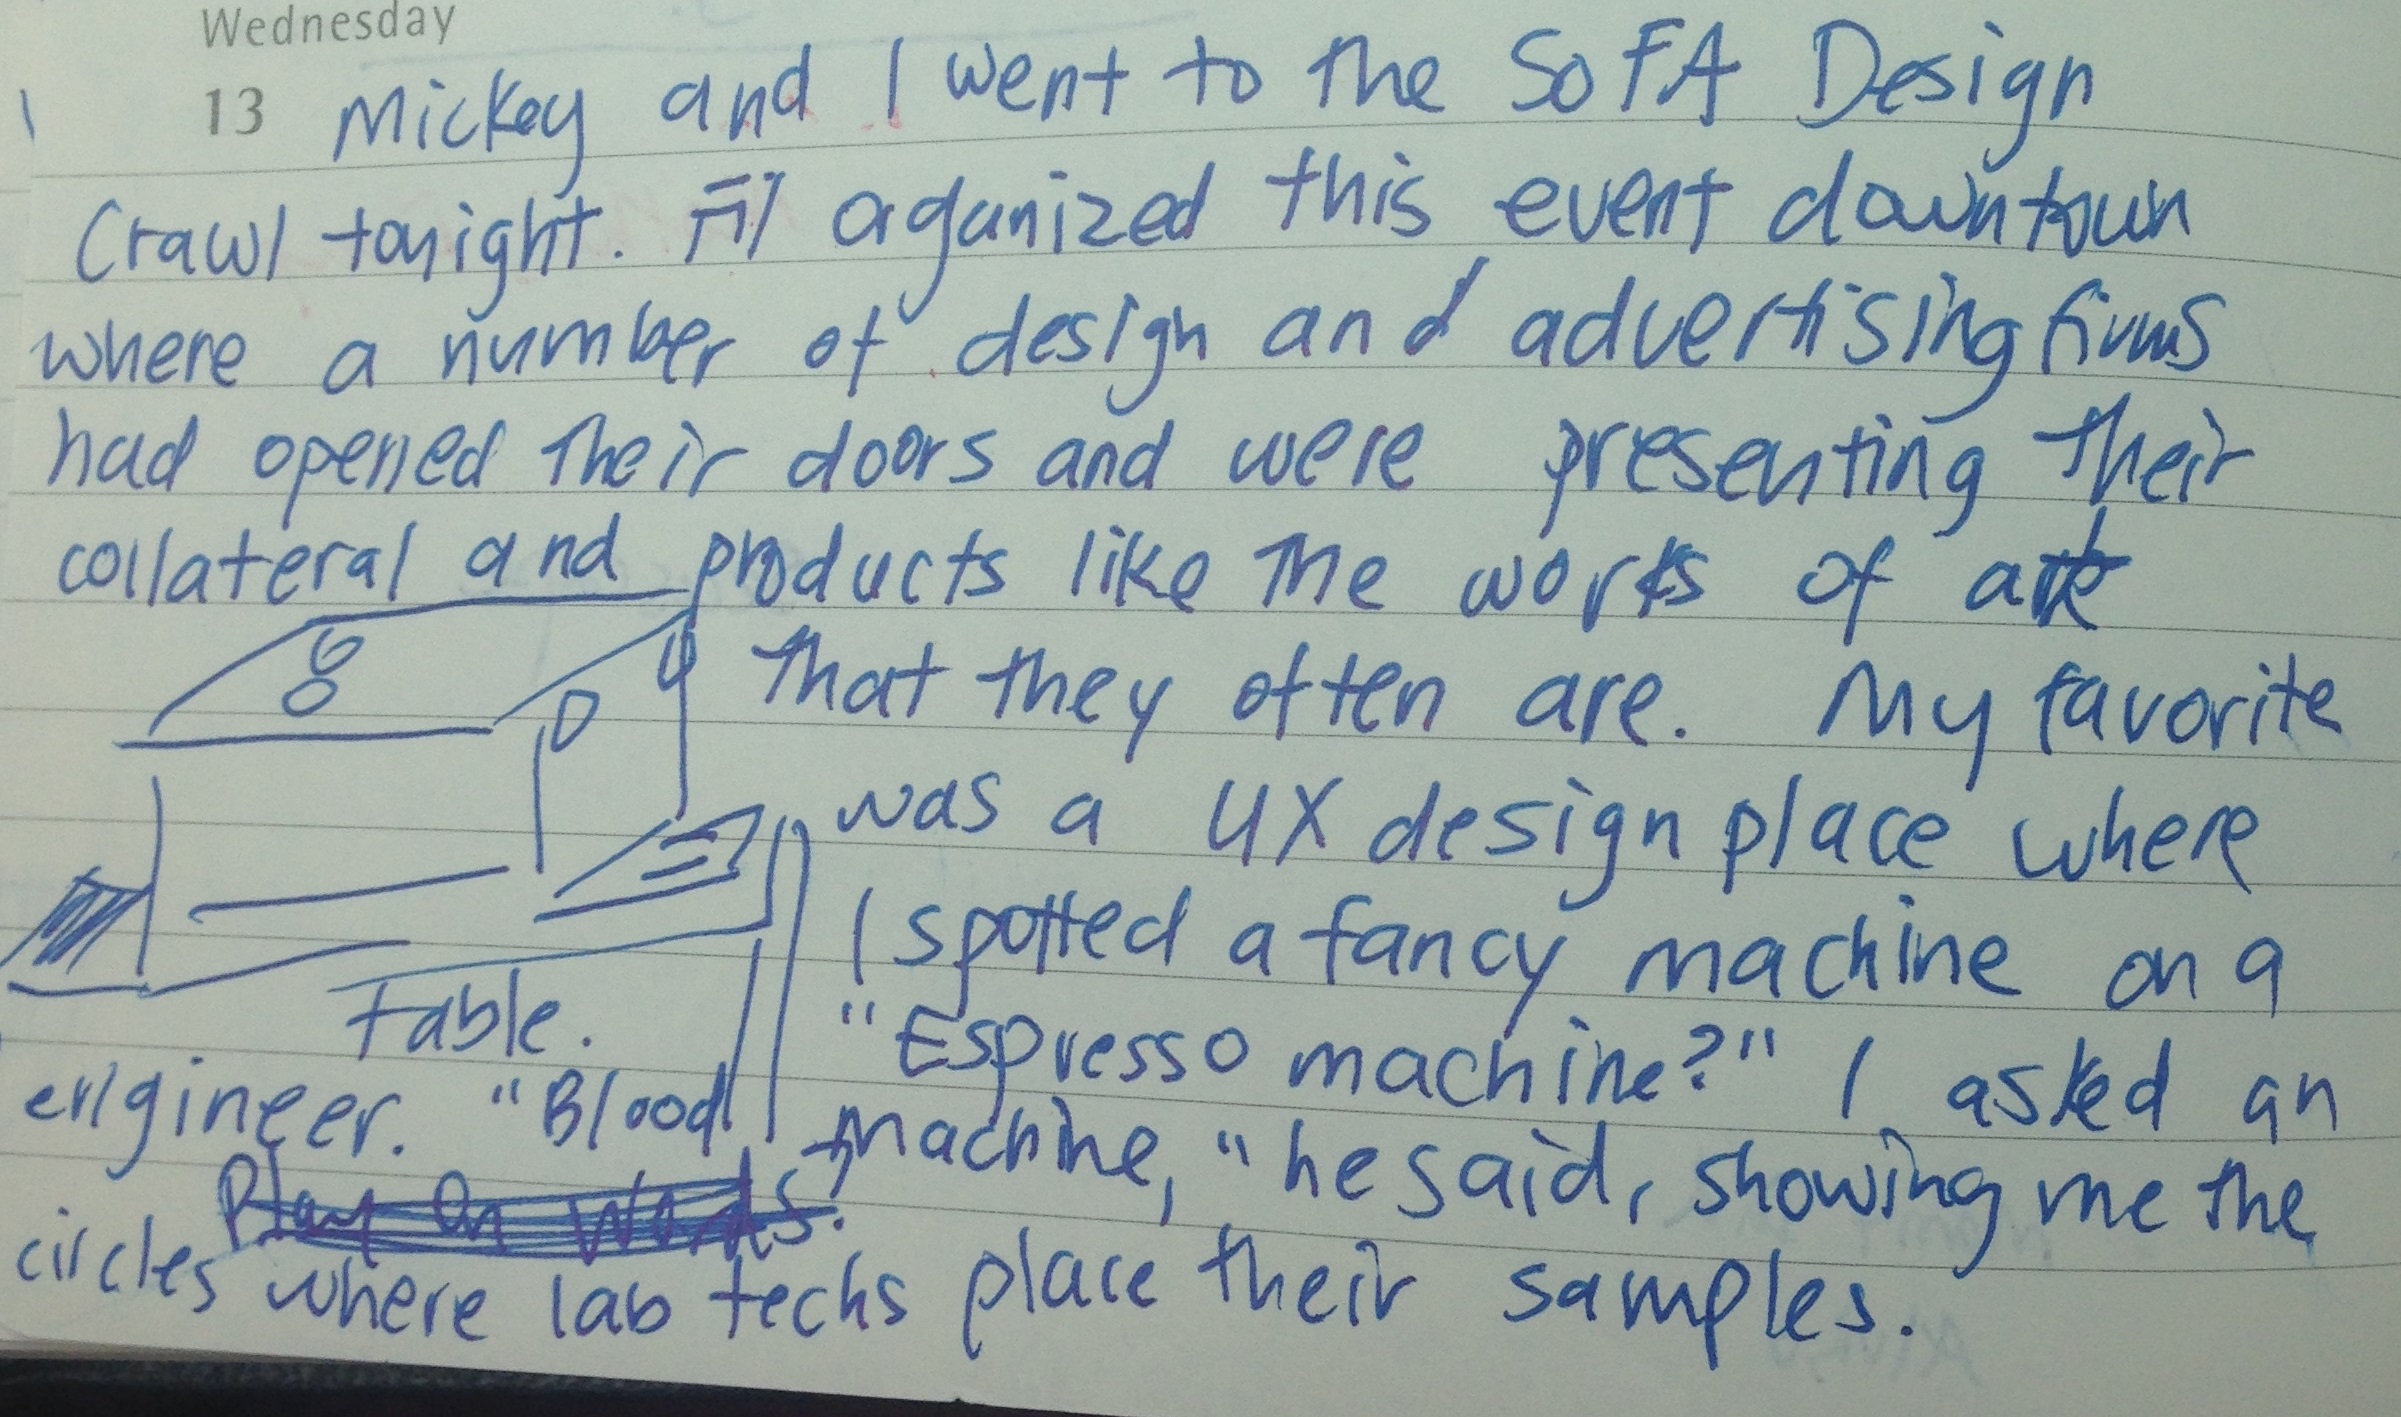 Wednesday
13 Mickey and I went to the SoFA Design
Crawl tonight. aganized this event downtown
where a number of design and advertising firms
had opened their doors and were presenting their
collateral and products like the works of art
that they often are. My favorite
was a UX design place where
I spotted a fancy machine on a
table. "Espresso machine?" I asked an
engineer. "Blood machine," he said, showing me the
Play on Words.
circles where lab techs place their samples.